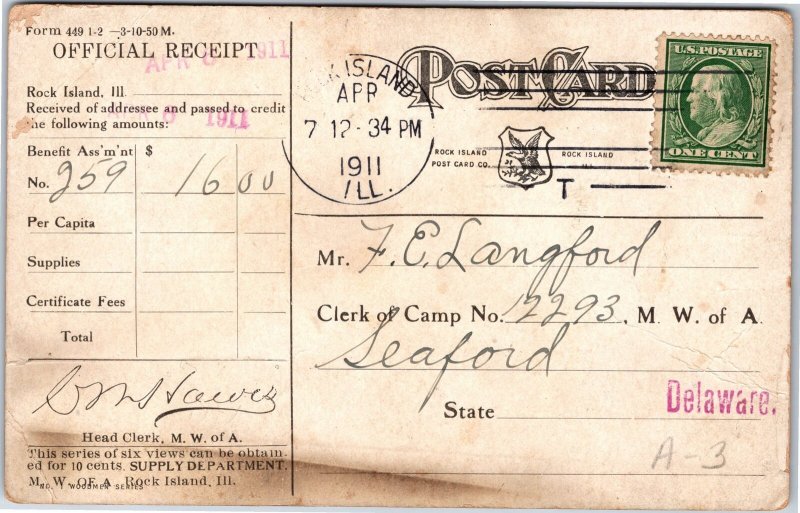 Form 449 1-2 —3-10-50 M.
OFFICIAL RECEIPT
APR 1911
Rock Island, Ill.
Received of addressee and passed to credit
the following amounts:
1911
Benefit Ass'm'nt $
No. 259 16 00
Per Capita
Supplies
Certificate Fees
Total
Head Clerk, M. W. of A.
This series of six views can be obtain-
ed for 10 cents. SUPPLY DEPARTMENT.
M. W. OF A. Rock Island, Ill.
NO. 1 WOODMEN SERIES
ROCK ISLAND
APR
7 12-34 PM
1911
ILL.
POST CARD
ROCK ISLAND
POST CARD CO.
ROCK ISLAND
T
U.S. POSTAGE
ONE CENT
Mr. F. E. Langford
Clerk of Camp No. 12293, M. W. of A.
Seaford
State Delaware.
A-3